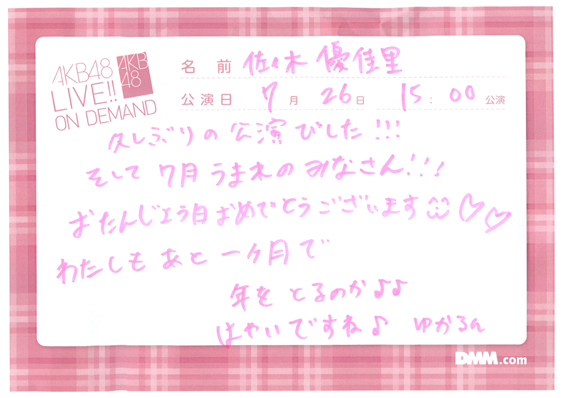 AKB48
LIVE!!
ON DEMAND
AKB
48
名 前 佐々木 優佳里
公演日 7月 26日 15:00 公演
久しぶりの公演でした!!!
そして7月うまれのみなさん!!!
おたんじょう日おめでとうございます♡♡
わたしもあと一ヶ月で
年をとるのか♪♪
はやいですね♪ ゆかるん
DMM.com